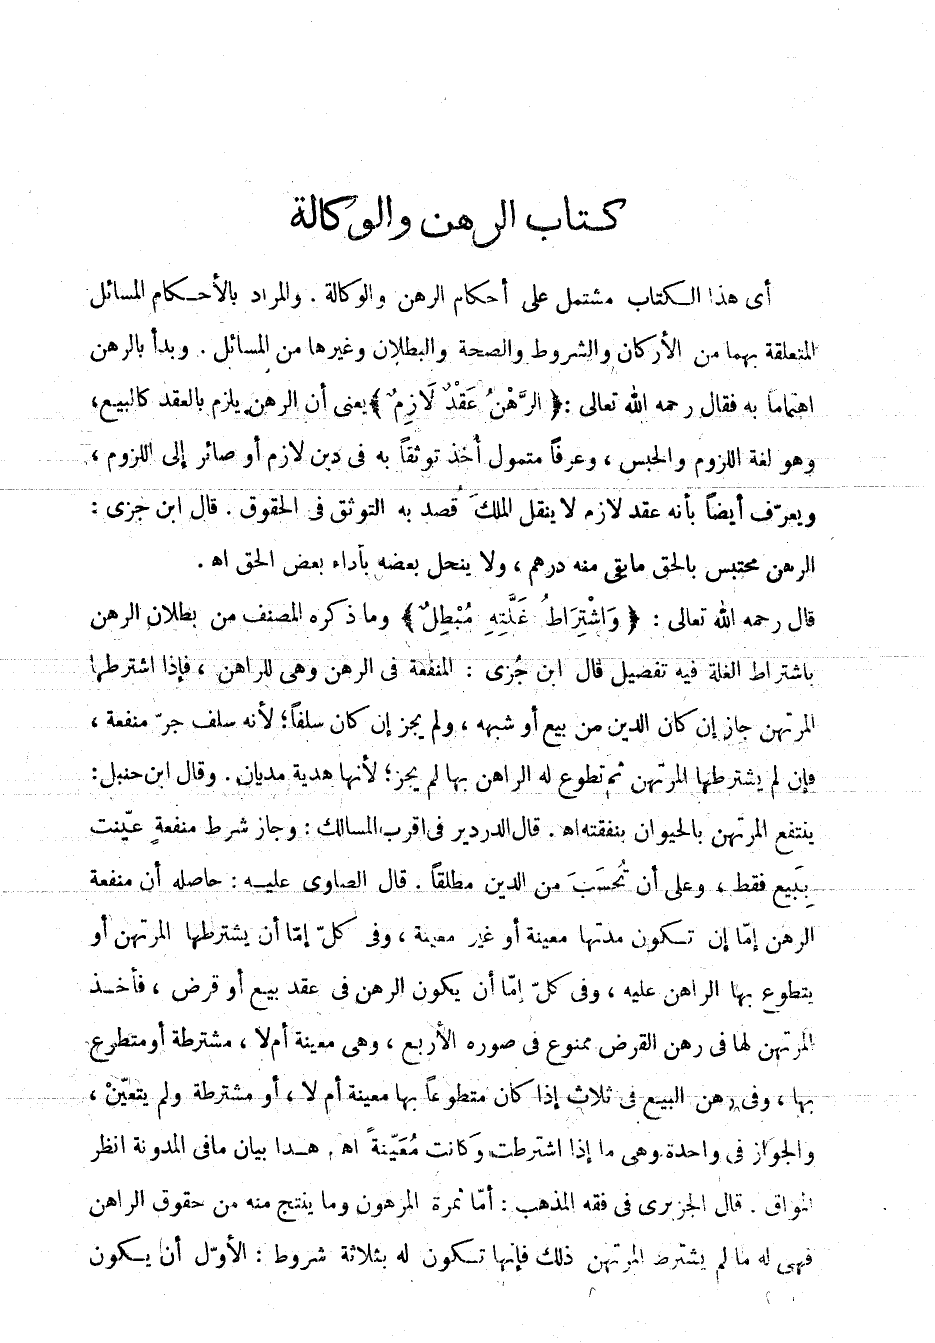 كتاب الرهن والوكالة
أى هذا الكتاب مشتمل على أحكام الرهن والوكالة . والمراد بالأحكام المسائل
المتعلقة بهما من الأركان والشروط والصحة والبطلان وغيرها من المسائل . وبدأ بالرهن
اهتماماً به فقال رحمه الله تعالى : ﴿ الرَّهْنُ عَقْدٌ لَازِمٌ ﴾ يعنى أن الرهن يلزم بالعقد كالبيع ،
وهو لغة اللزوم والحبس ، وعرفاً متمول أُخذ توثقاً به فى دين لازم أو صائر إلى اللزوم ،
ويعرّف أيضاً بأنه عقد لازم لا ينقل الملكَ قُصد به التوثق فى الحقوق . قال ابن جزى :
الرهن محتبس بالحق ما بقى منه درهم ، ولا ينحل بعضه بأداء بعض الحق اه .
قال رحمه الله تعالى : ﴿ وَاشْتِرَاطُ غَلَّتِهِ مُبْطِلٌ ﴾ وما ذكره المصنف من بطلان الرهن
باشتراط الغلة فيه تفصيل قال ابن جُزى : المنفعة فى الرهن وهى للراهن ، فإذا اشترطها
المرتهن جاز إن كان الدين من بيع أو شبهه ، ولم يجز إن كان سلفاً ؛ لأنه سلف جرّ منفعة ،
فإن لم يشترطها المرتهن ثم تطوع له الراهن بها لم يجز ؛ لأنها هدية مديان . وقال ابن حنبل :
ينتفع المرتهن بالحيوان بنفقته اه . قال الدردير فى اقرب المسالك : وجاز شرط منفعةٍ عيّنت
بِبَيع فقط ، وعلى أن تُحسَبَ من الدين مطلقاً . قال الصاوى عليه : حاصله أن منفعة
الرهن إمّا إن تكون مدتها معينة أو غير معينة ، وفى كلّ إمّا أن يشترطها المرتهن أو
يتطوع بها الراهن عليه ، وفى كلّ إمّا أن يكون الرهن فى عقد بيع أو قرض ، فأخذ
المرتهن لها فى رهن القرض ممنوع فى صوره الأربع ، وهى معينة أم لا ، مشترطة أو متطوع
بها ، وفى رهن البيع فى ثلاث إذا كان متطوعاً بها معينة أم لا ، أو مشترطة ولم يتعيّنْ ،
والجواز فى واحدة وهى ما إذا اشترطت وكانت مُعَيّنةً اه . هذا بيان مافى المدونة انظر
المواق . قال الجزيرى فى فقه المذهب : أمّا ثمرة المرهون وما ينتج منه من حقوق الراهن
فهى له ما لم يشترط المرتهن ذلك فإنها تكون له بثلاثة شروط : الأوّل أن يكون